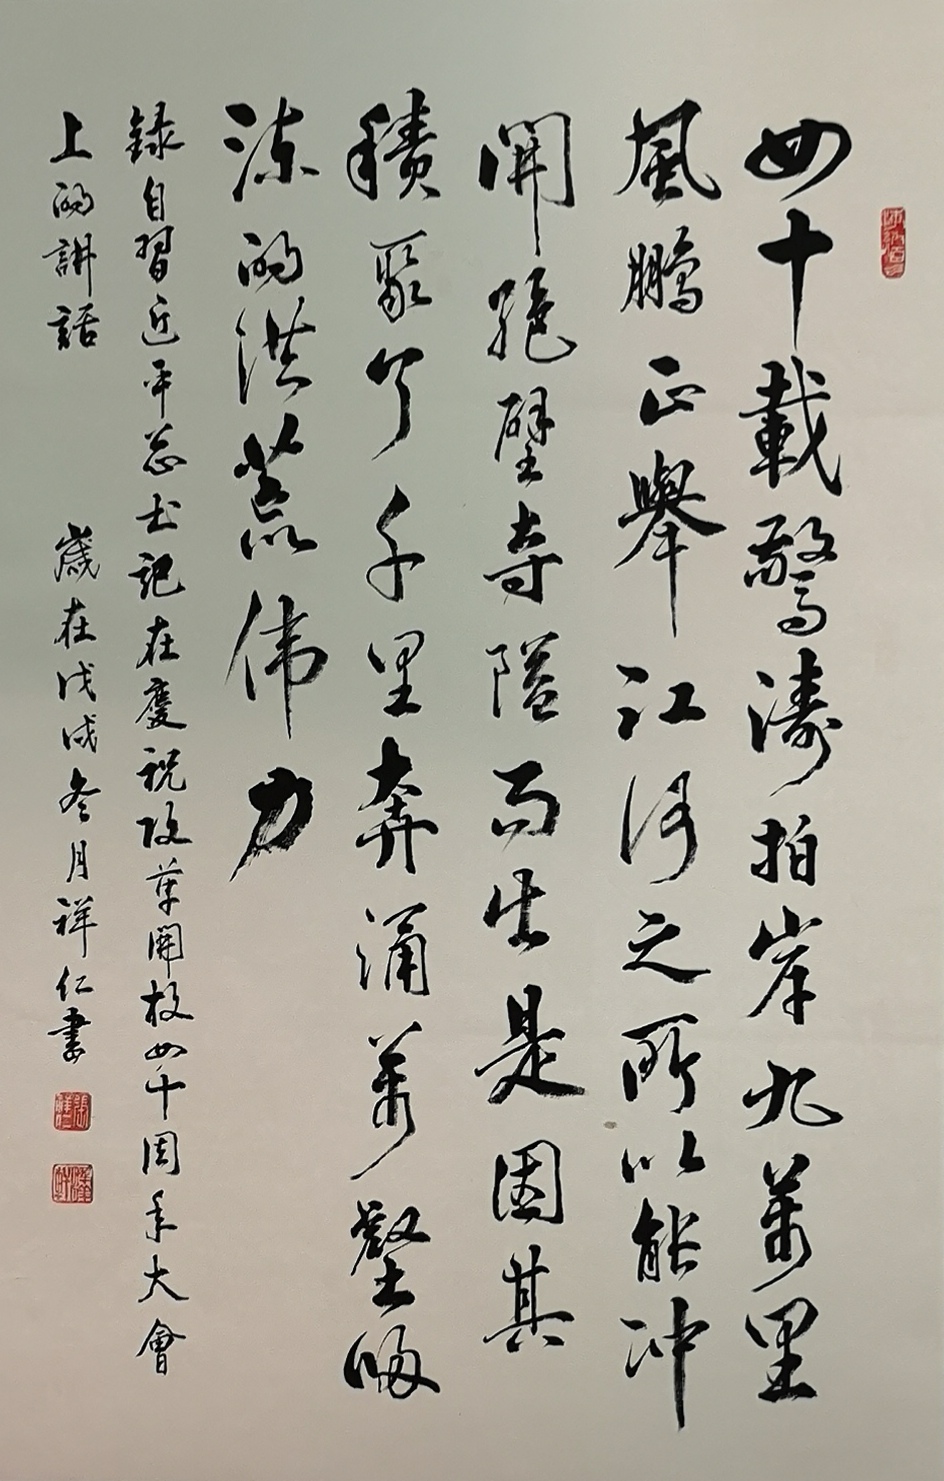 四十載驚濤拍岸九萬里
風鵬正舉江河之所以能冲
開絕壁夺隘而出是因其
積聚了千里奔涌萬壑归
流的洪荒伟力
録自習近平总书記在慶祝改革開放四十周年大會
上的講話 歲在戊戌冬月祥仁書